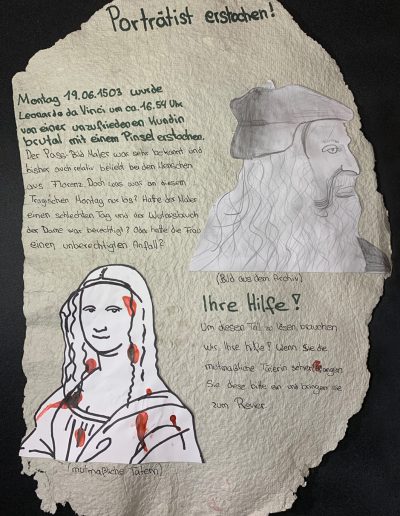 Porträtist erstochen!
Montag 19.06.1503 wurde
Leonardo da Vinci um ca. 16.54 Uhr
von einer unzufriedenen Kundin
brutal mit einem Pinsel erstochen.
Der Pass-Bild Maler war sehr bekannt und
bisher auch relativ beliebt bei den Menschen
aus Florenz. Doch was war an diesem
Tragischen Montag nur los? Hatte der Maler
einen schlechten Tag und der Wutausbruch
der Dame war berechtigt? Oder hatte die Frau
einen unberechtigten Anfall?
(Bild aus dem Archiv)
Ihre Hilfe!
Um diesen Fall zu lösen, brauchen
wir Ihre Hilfe! Wenn Sie die
mutmaßliche Täterin sehen, fangen
Sie diese bitte ein und bringen sie
zum Revier.
(mutmaßliche Täterin)